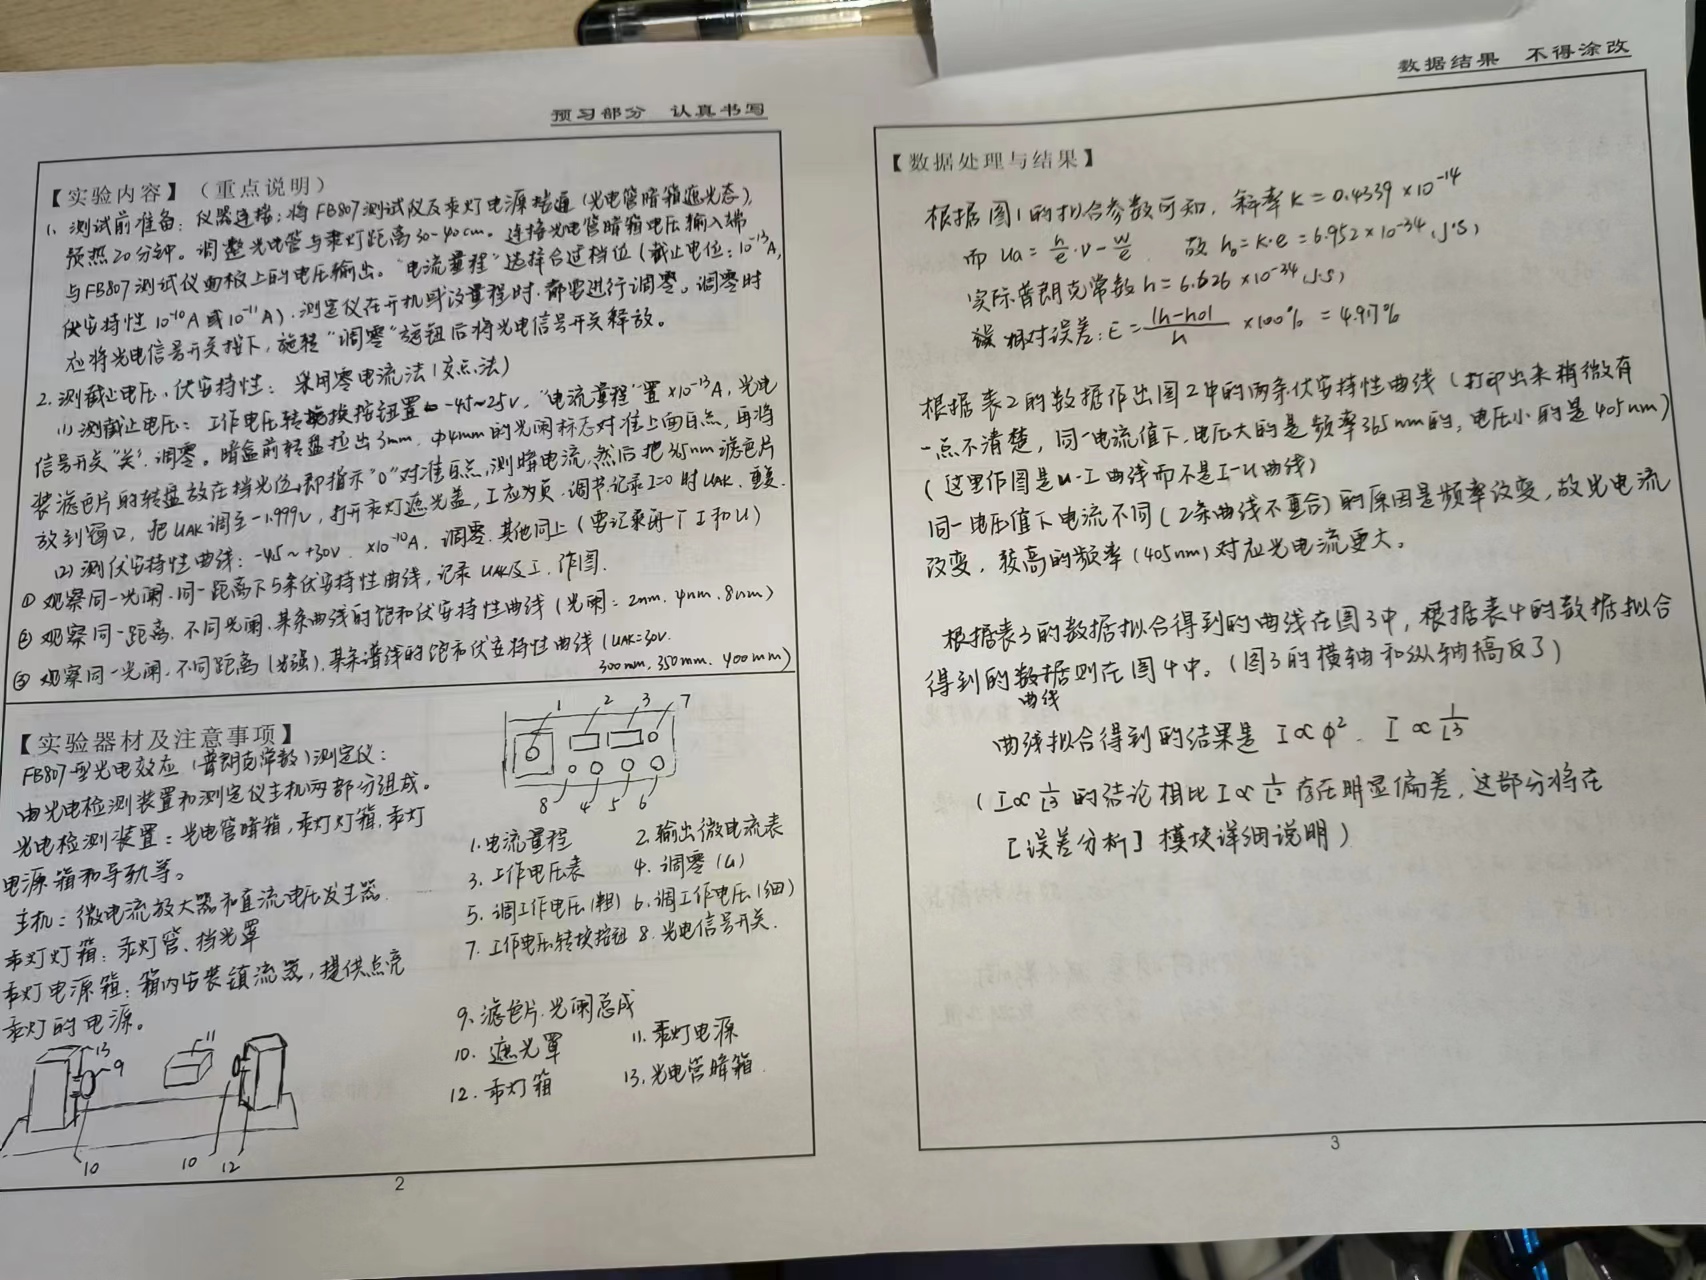 预习部分 认真书写
【实验内容】（重点说明）
1. 测试前准备：仪器连接：将FB807测试仪及汞灯电源接通（光电管暗箱遮光态），
预热20分钟。调整光电管与汞灯距离30-40cm。连接光电管暗箱电压输入端
与FB807测试仪面板上的电压输出。"电流量程"选择合过档位（截止电位：10⁻¹³A，
伏安特性 10⁻¹⁰A 或 10⁻¹¹A）. 测定仪在开机或改量程时. 都要进行调零。调零时
应将光电信号开关按下，旋转"调零"旋钮后将光电信号开关释放。
2. 测截止电压、伏安特性： 采用零电流法（交点法）
(1) 测截止电压： 工作电压转换按钮置 -4.5~2.5V，"电流量程"置×10⁻¹³A，光电
信号开关"关"，调零。暗盒前转盘拉出3mm，Φ4mm的光阑标志对准上面白点，再将
装滤色片的转盘放在挡光位，即指示"0"对准白点，测暗电流，然后把365nm滤色片
放到窗口，把UAK调至-1.999V，打开汞灯遮光盖，I应为负，调节，记录I=0时UAK，重复.
(2) 测伏安特性曲线：-4.5~+30V ×10⁻¹⁰A，调零. 其他同上（要记录每一个I和U）
① 观察同一光阑. 同一距离下5条伏安特性曲线，记录UAK及I. 作图.
② 观察同一距离. 不同光阑. 某条曲线的饱和伏安特性曲线（光阑：2nm. 4nm. 8nm）
③ 观察同一光阑. 不同距离（光强）. 某条谱线的饱和伏安特性曲线（UAK=30V.
300mm. 350mm. 400mm）
【实验器材及注意事项】
FB807型光电效应（普朗克常数）测定仪：
由光电检测装置和测定仪主机两部分组成。
光电检测装置：光电管暗箱，汞灯灯箱，汞灯
电源箱和导轨等。
主机：微电流放大器和直流电压发生器.
汞灯灯箱：汞灯管、挡光罩
汞灯电源箱：箱内安装镇流器，提供点亮
汞灯的电源。
1 2 3 7
8 4 5 6
1. 电流量程 2. 输出微电流表
3. 工作电压表 4. 调零（A）
5. 调工作电压（粗） 6. 调工作电压（细）
7. 工作电压转换按钮 8. 光电信号开关.
9. 滤色片. 光阑总成
10. 遮光罩 11. 汞灯电源
12. 汞灯箱 13. 光电管暗箱
13 9 11
10 10 12
2
数据结果 不得涂改
【数据处理与结果】
根据图1的拟合参数可知，斜率K=0.4339×10⁻¹⁴
而 Ua = h/e·v - W/e 故 h₀=K·e=6.952×10⁻³⁴（J·S）
实际普朗克常数 h=6.626×10⁻³⁴（J·S）
相对误差：E = |h-h0|/h ×100% = 4.917%
根据表2的数据作出图2中的两条伏安特性曲线（打印出来稍微有
一点不清楚，同一电流值下，电压大的是频率365nm的，电压小的是405nm）
（这里作图是U-I曲线而不是I-U曲线）
同一电压值下电流不同（2条曲线不重合）的原因是频率改变，故光电流
改变，较高的频率（405nm）对应光电流更大。
根据表3的数据拟合得到的曲线在图3中，根据表4的数据拟合
得到的数据则在图4中。（图3的横轴和纵轴搞反了）
曲线
曲线拟合得到的结果是 I∝Φ². I∝1/L³
（I∝1/L³的结论相比I∝1/L²存在明显偏差，这部分将在
[误差分析] 模块详细说明）
3